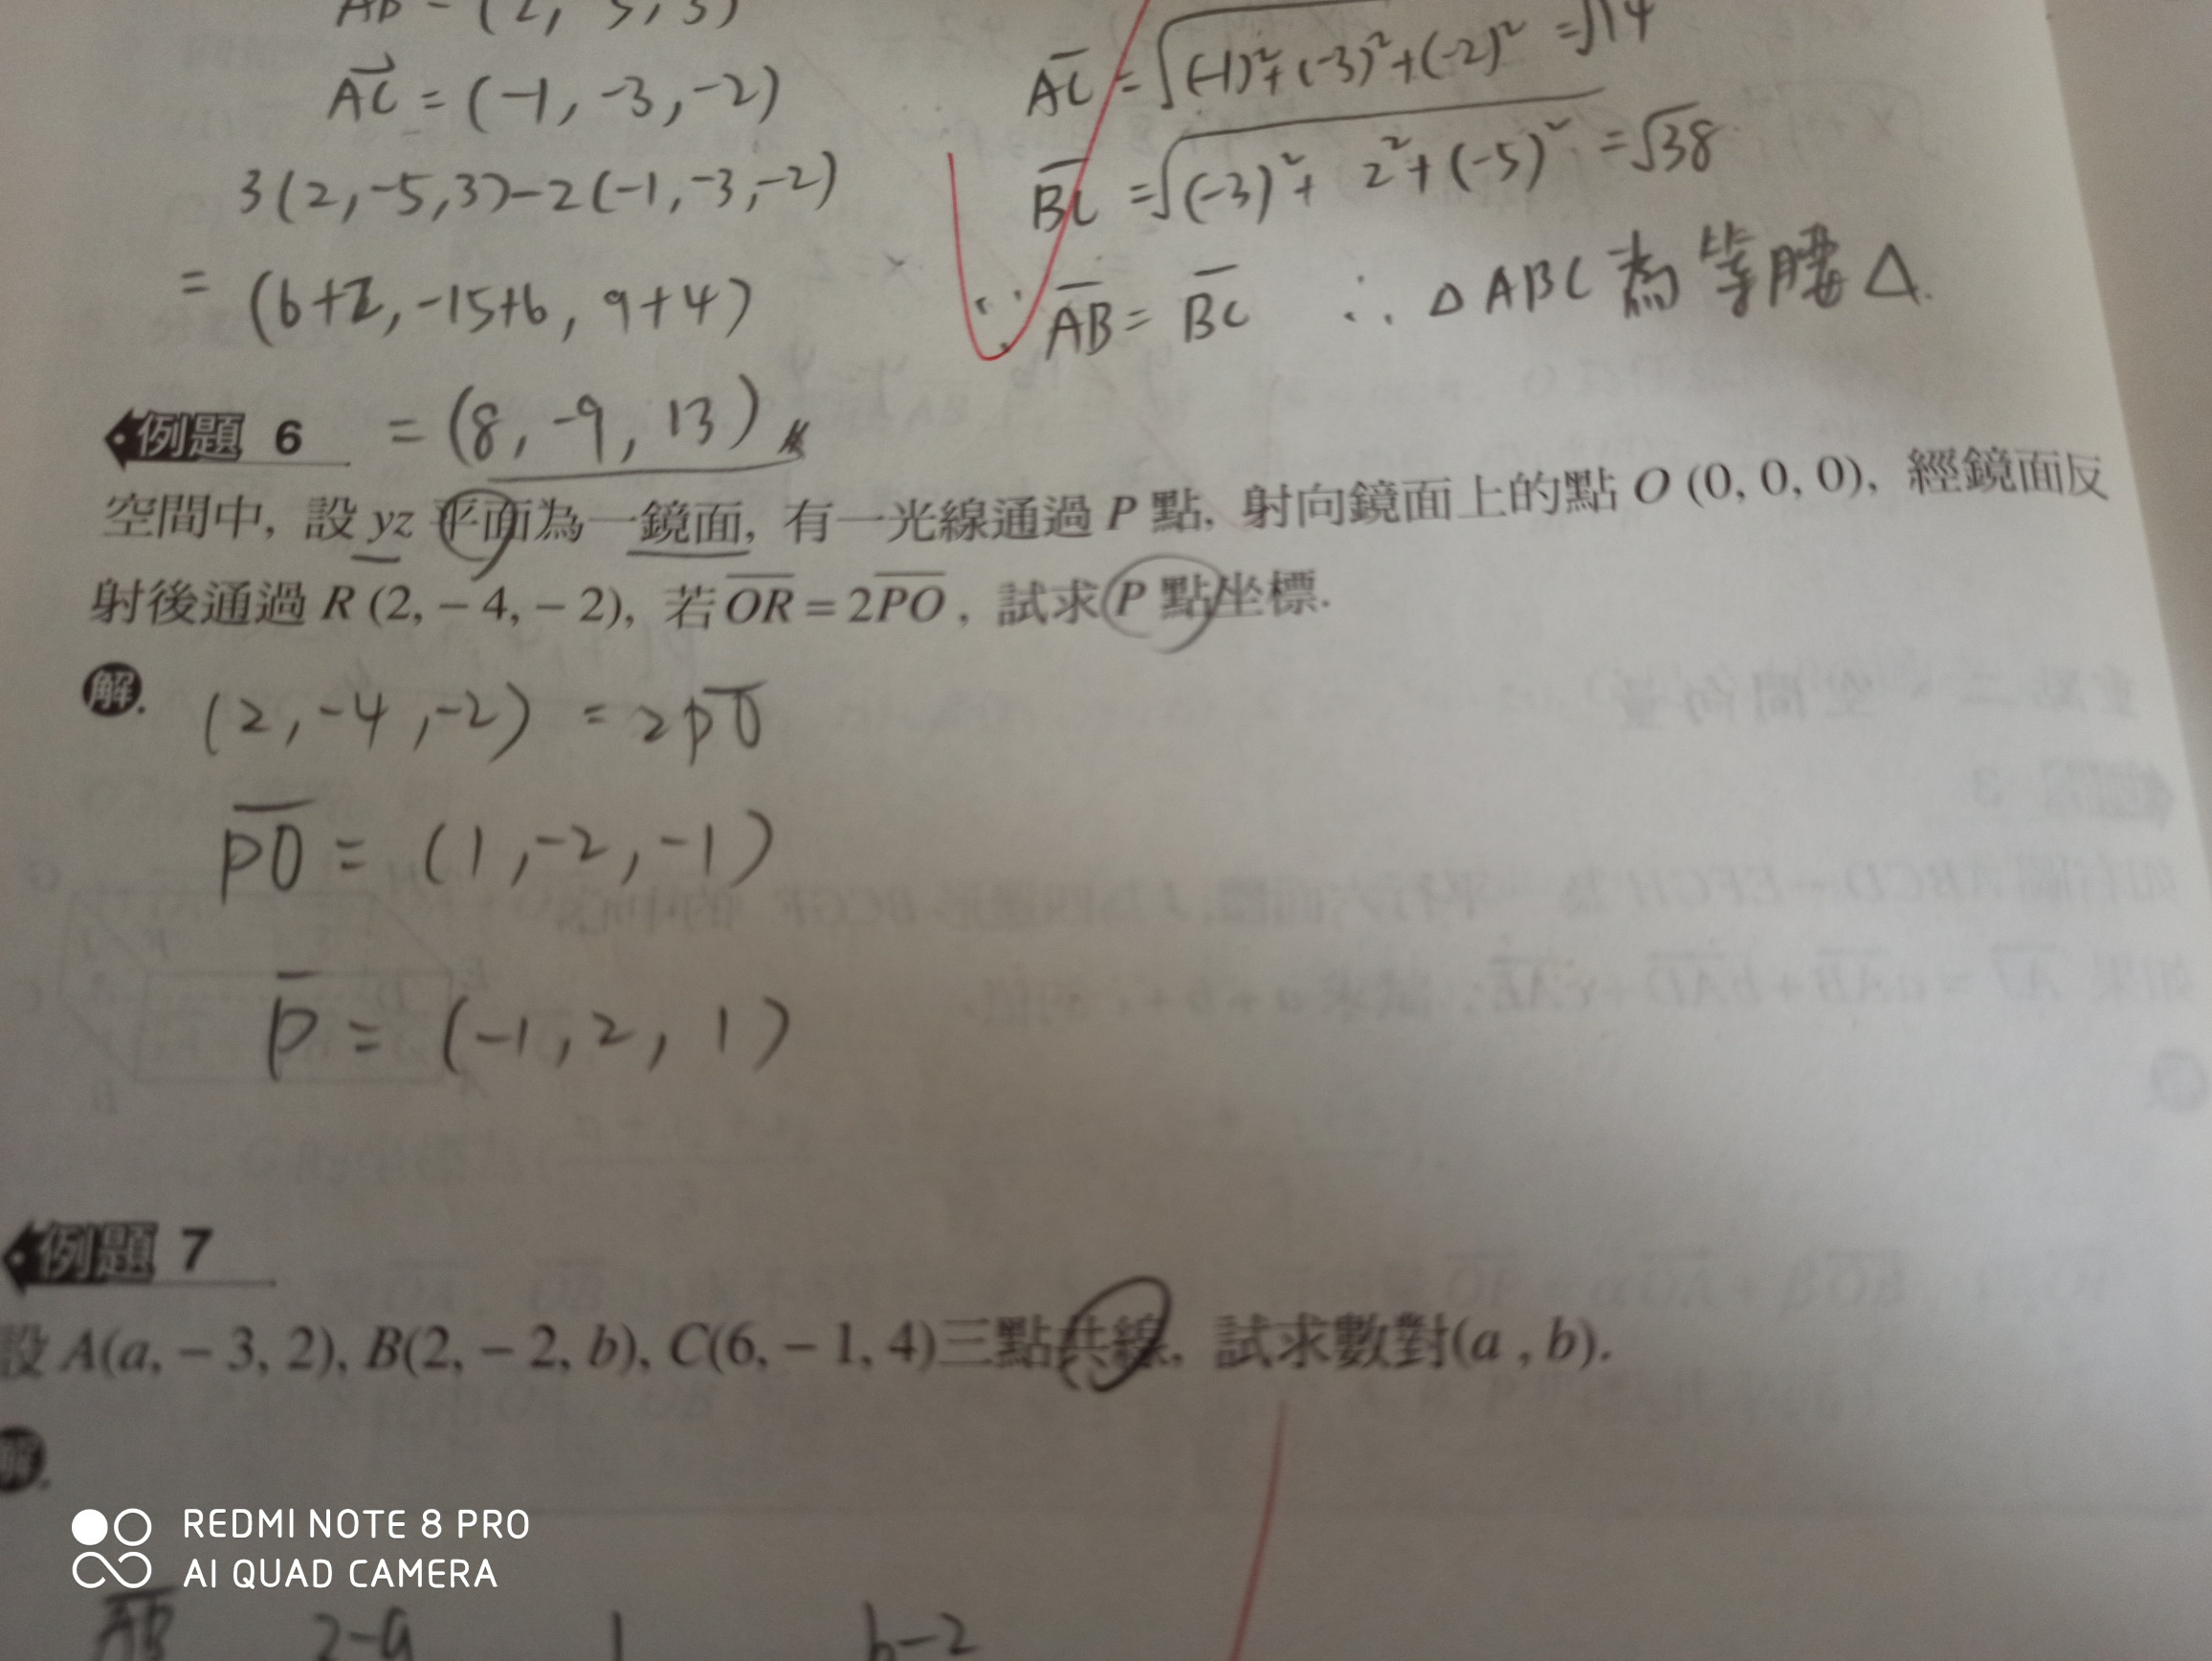 AB = (2, -5, 3)
AC = (-1, -3, -2)
3(2, -5, 3)-2(-1, -3, -2)
= (6+2, -15+6, 9+4)
= (8, -9, 13)
AC = √(-1)²+(-3)²+(-2)² = √14
BC = √(-3)²+ 2²+(-5)² = √38
∵ AB = BC ∴ △ABC 為等腰△.
例題 6
空間中, 設 yz 平面為一鏡面, 有一光線通過 P 點, 射向鏡面上的點 O (0, 0, 0), 經鏡面反
射後通過 R (2, – 4, – 2), 若 OR = 2PO , 試求 P 點坐標.
解.
(2, -4, -2) = 2PO
PO = (1, -2, -1)
P = (-1, 2, 1)
例題 7
設 A(a, – 3, 2), B(2, – 2, b), C(6, – 1, 4)三點共線, 試求數對(a , b).
解.
REDMI NOTE 8 PRO
AI QUAD CAMERA
AB 2-a 1 b-2